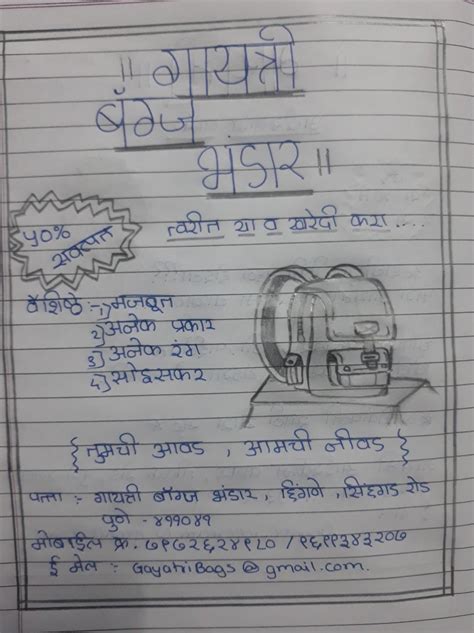 ॥ गायत्री
बॅग्ज
भंडार ॥
५०%
सवलत
त्वरीत या व खरेदी करा ....
वैशिष्ठे :- १) मजबूत
२) अनेक प्रकार
३) अनेक रंग
४) सोईस्कर
{ तुमची आवड , आमची नीवड }
पत्ता :- गायत्री बॅग्ज भंडार , हिंगणे , सिंहगड रोड
पुणे - ४११०४१
मोबाईल क्र.
ई मेल :- GayatriBags@gmail.com.